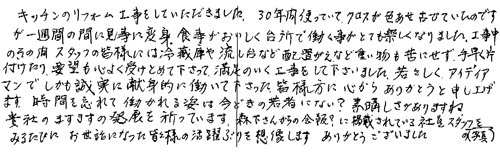 キッチンのリフォーム工事をしていただきました。30年間使っていてクロスが色あせ古せていたのです
が一週間の間に見事に変身 食事がおいしく台所で働く事がとても楽しくなりました。工事中
の系の間 スタッフの皆様には冷蔵庫や流し台など配置がえなど重い物も苦にせず、手早く片
付けたり、要望も心よく受けとめて下さって満足のいく工事をして下さいました。若々しく、アイディア
マンでしかも誠実に献身的に働いて下さった皆様方に心からありがとうと申し上げ
ます 時間を忘れて働かれる姿は今どきの若者にない?素晴しさがありますね
貴社のますますの発展を祈っています。森下さんからの会報?に掲載されている社員スタッフを
みるたびに お世話になった皆様の活躍ぶりを想像します ありがとうございました